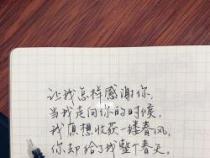 让我怎样感谢你，
当我走向你的时候，
我原想收获一缕春风，
你却给了我整个春天。